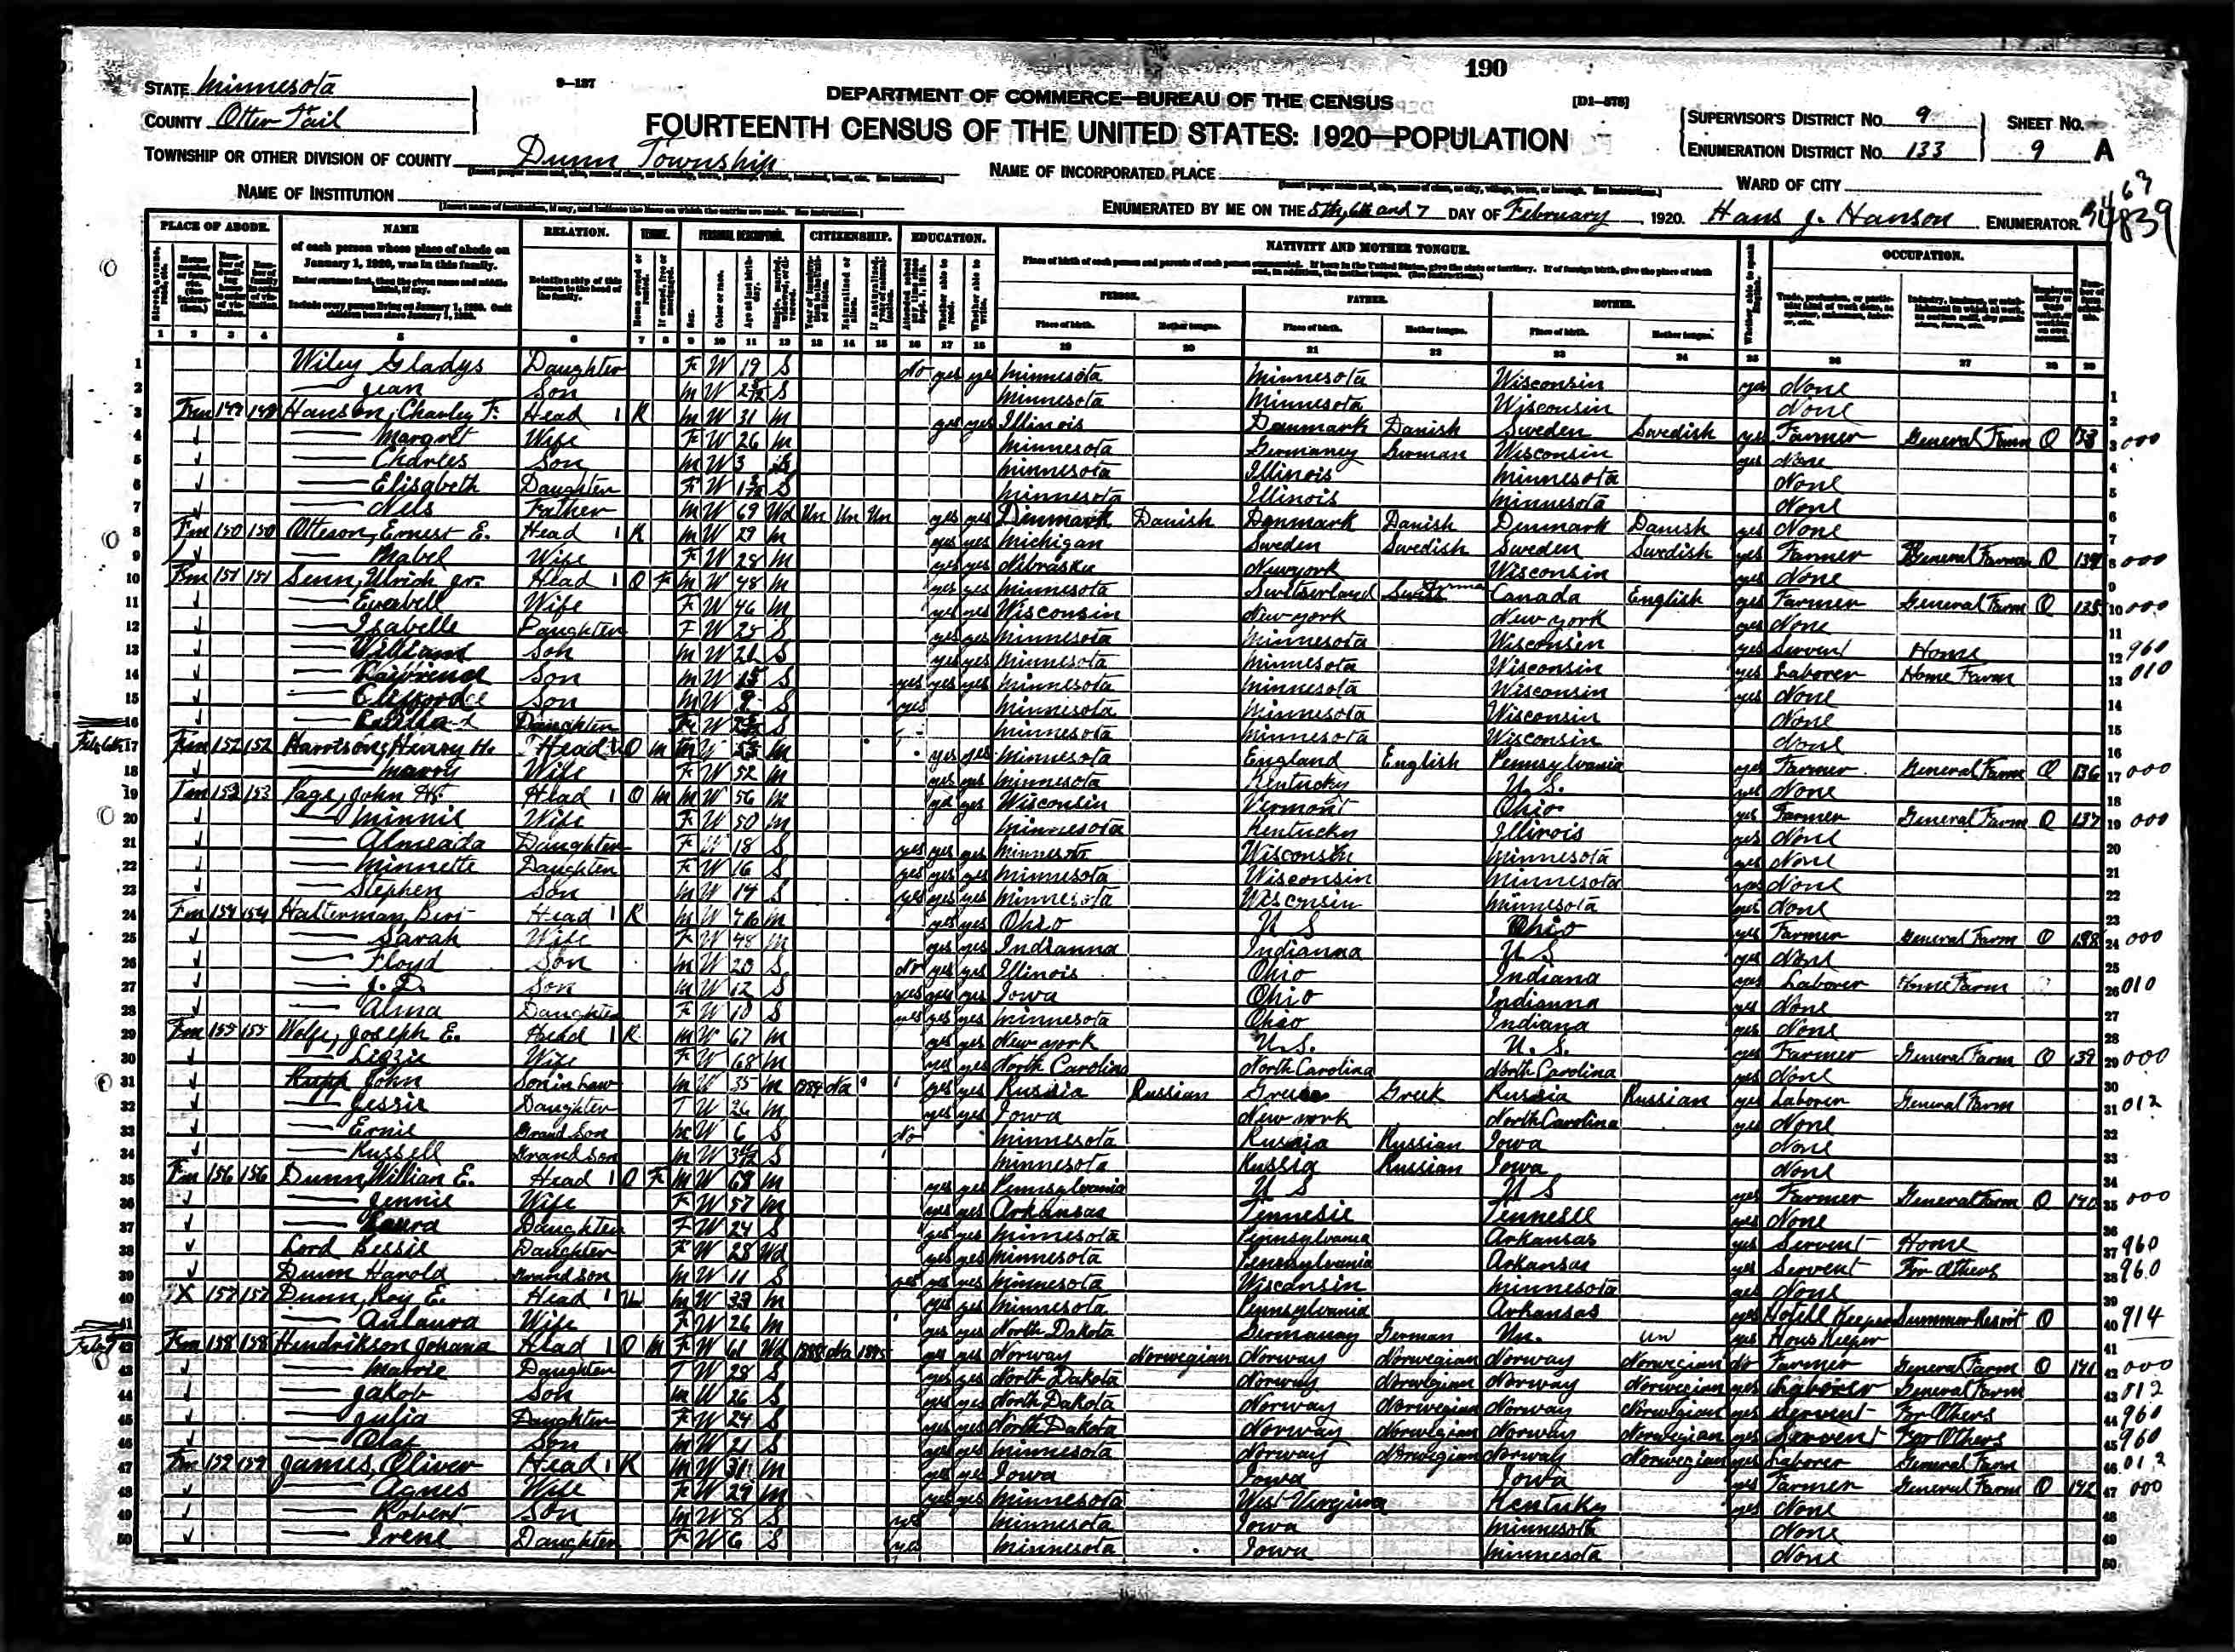 190
STATE Minnesota
9-137
DEPARTMENT OF COMMERCE—BUREAU OF THE CENSUS
[D1-578]
COUNTY Otter Tail
FOURTEENTH CENSUS OF THE UNITED STATES: 1920—POPULATION
SUPERVISOR'S DISTRICT No. 9
SHEET No.
ENUMERATION DISTRICT No. 133
9 A
TOWNSHIP OR OTHER DIVISION OF COUNTY Dunn Township
NAME OF INCORPORATED PLACE
WARD OF CITY
NAME OF INSTITUTION
ENUMERATED BY ME ON THE 5th, 6th and 7 DAY OF February, 1920. Hans J. Hanson ENUMERATOR.
PLACE OF ABODE. NAME RELATION. TENURE. PERSONAL DESCRIPTION. CITIZENSHIP. EDUCATION. NATIVITY AND MOTHER TONGUE. OCCUPATION.
of each person whose place of abode on January 1, 1920, was in this family.
Enter surname first, then the given name and middle initial, if any.
Include every person living on January 1, 1920. Omit children born since January 1, 1920.
Relationship of this person to the head of the family.
PERSON. FATHER. MOTHER.
Place of birth. Mother tongue. Place of birth. Mother tongue. Place of birth. Mother tongue.
1 2 3 4 5 6 7 8 9 10 11 12 13 14 15 16 17 18 19 20 21 22 23 24 25 26 27 28 29
1 Wiley Gladys Daughter F W 19 S No yes yes Minnesota Minnesota Wisconsin yes None
2 — Jean Son M W S Minnesota Minnesota Wisconsin None
3 Fm 149 149 Hanson, Charley F. Head 1 R M W 31 M yes yes Illinois Denmark Danish Sweden Swedish yes Farmer General Farm O 133 000
4 — Margret Wife F W 26 M Minnesota Germaney German Wisconsin yes None
5 — Charles Son M W 3 S Minnesota Illinois Minnesota None
6 — Elisabeth Daughter F W S Minnesota Illinois Minnesota None
7 — Nels Father M W 69 Wd Un Un Un yes yes Dinmark Danish Denmark Danish Denmark Danish yes None
8 Fm 150 150 Otteson, Ernest E. Head 1 R M W 29 M yes yes Michigan Sweden Swedish Sweden Swedish yes Farmer General Farm O 134 000
9 — Mabel Wife F W 28 M yes yes Nebraska Newyork Wisconsin yes None
10 Fm 151 151 Senn, Ulrich Jr. Head 1 O F M W 48 M yes yes Minnesota Switserland Swiss German Canada English yes Farmer General Farm O 135 000
11 — Wife F W 46 M yes yes Wisconsin New york New york yes None
12 — Isabelle Daughter F W 25 S yes yes Minnesota Minnesota Wisconsin yes Servent Home 960
13 — William Son M W 21 S yes yes Minnesota Minnesota Wisconsin yes Laborer Home Farm 010
14 — Lawrence Son M W 15 S yes yes yes Minnesota Minnesota Wisconsin yes None
15 — Clifford Son M W 9 S yes Minnesota Minnesota Wisconsin None
16 — Daughter F W S Minnesota Minnesota Wisconsin None
17 Fm 152 152 Harrison, Henry H. Head O M M W M yes yes Minnesota England English Pennsylvania yes Farmer General Farm O 136 000
18 — Marry Wife F W 52 M yes yes Minnesota Kentucky U.S. yes None
19 Fm 153 153 Page, John H. Head 1 O M M W 56 M yes yes Wisconsin Vermont Ohio yes Farmer General Farm O 137 000
20 — Minnie Wife F W 50 M Minnesota Kentucky Illinois yes None
21 — Almeada Daughter F W 18 S yes yes yes Minnesota Wisconsin Minnesota yes None
22 — Minnette Daughter F W 16 S yes yes yes Minnesota Wisconsin Minnesota yes None
23 — Stephen Son M W 14 S yes yes yes Minnesota Wisconsin Minnesota yes None
24 Fm 154 154 Halterman, Ben Head 1 R M W 46 M yes yes Ohio U S Ohio yes Farmer General Farm O 138 000
25 — Sarah Wife F W 48 M yes yes Indianna Indianna U S yes None
26 — Floyd Son M W 20 S No yes yes Illinois Ohio Indiana yes Laborer Home Farm 010
27 — J. D. Son M W 12 S yes yes yes Iowa Ohio Indianna yes None
28 — Alma Daughter F W 10 S yes yes yes Minnesota Ohio Indiana yes None
29 Fm 155 155 Wolfe, Joseph E. Head 1 R M W 67 M yes yes New york U.S. U.S. yes Farmer General Farm O 139 000
30 — Lizzie Wife F W 68 M yes yes North Carolina North Carolina North Carolina yes None
31 Rupp John Son in Law M W 35 M 1889 Na yes yes Russia Russian Greece Greek Russia Russian yes Laborer General Farm 012
32 — Jessie Daughter F W 26 M yes yes Iowa New york North Carolina yes None
33 — Ernie Grand Son M W 6 S No Minnesota Russia Russian Iowa None
34 — Russell Grandson M W S Minnesota Russia Russian Iowa None
35 Fm 156 156 Dunn, Willian E. Head 1 O F M W 68 M yes yes Pennsylvania U S U S yes Farmer General Farm O 140 000
36 — Jennie Wife F W 57 M yes yes Arkansas Tennesie Tennesee yes None
37 — Laura Daughter F W 24 S yes yes Minnesota Pennsylvania Arkansas yes Servent Home 960
38 Lord Bessie Daughter F W 28 Wd yes yes Minnesota Pensylvania Arkansas yes Servent For Others 960
39 Dunn Harold Grandson M W 11 S yes yes yes Minnesota Wisconsin Minnesota yes None
40 X 157 157 Dunn, Roy E. Head 1 M W 33 M yes yes Minnesota Pennsylvania Arkansas yes Hotell Keeper Summer Resort O 914
41 — Aulaura Wife F W 26 M yes yes North Dakota Germanay German Un. Un yes Hous Keeper
42 Fm 158 158 Hendrikson Johana Head 1 O M F W 61 Wd Na 1895 yes yes Norway Norwegian Norway Norwegian Norway Norwegian No Farmer General Farm O 141 000
43 — Marrie Daughter F W 28 S yes yes North Dakota Norway Norwegian Norway Norwegian yes Laborer General Farm 012
44 — Jakob Son M W 26 S yes yes North Dakota Norway Norwegian Norway Norwegian yes Servent For Others 960
45 — Julia Daughter F W 24 S yes yes North Dakota Norway Norwegian Norway Norwegian yes Servent For Others 960
46 — Olaf Son M W 21 S yes yes Minnesota Norway Norwegian Norway Norwegian yes Laborer General Farm 012
47 Fm 159 159 James, Oliver Head 1 R M W 31 M yes yes Iowa Iowa Iowa yes Farmer General Farm O 142 000
48 — Agnes Wife F W 29 M yes yes Minnesota West Virginia Kentuky yes None
49 — Robert Son M W 8 S yes Minnesota Iowa Minnesota None
50 — Irene Daughter F W 6 S yes Minnesota Iowa Minnesota None